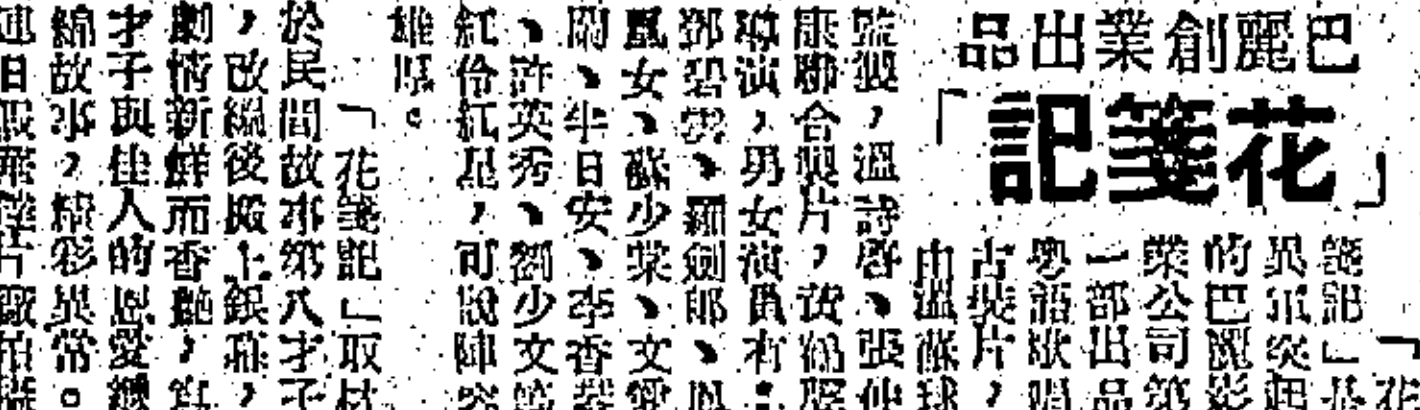 巴麗創業出品
「花箋記」
「花
箋記」是
異軍突起
的巴麗影
業公司第
一部出品
粵語歌唱
古裝片，
由溫蔭球
監製，溫詩啓、張仲
康聯合製片，黃鶴聲
導演，男女演員有：
鄧碧雲、羅劍郎、鳳
凰女、蘇少棠、文愛
蘭、半日安、李香琴
、許英秀、劉少文等
紅伶紅星，可說陣容
雄厚。
「花箋記」取材
於民間故事第八才子
，改編後搬上銀幕，
劇情新鮮而香艷，寫
才子與佳人的恩愛纏
綿故事，精彩異常。
連日假華達片廠拍攝